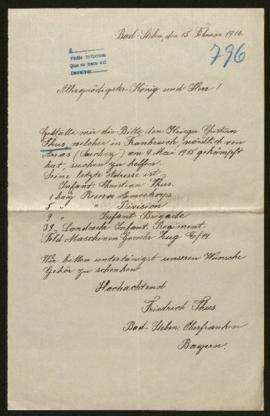 Bad-Steben, den 15. Februar 1916.
796
Pedir informes
Que se haga así
Allergnädigster König und Herr!
Gestatte mir die Bitte, den Krieger Christian
Thus, welcher in Frankreich, nördlich von
Arras (Souchez) am 9. Mai 1915 gekämpft
hat, suchen zu helfen.
Seine letzte Adresse ist
Infant. Christian Thus.
1 bayr. Reserve Armeekorps
5 " " Division
9 " Infant Brigade
Landwehr Infant. Regiment.
Feld Maschinen Gewehr Zug
Wir bitten untertänigst unserem Wunsche
Gehör zu schenken
Hochachtend
Friedrich Thus
Bad-Steben, Oberfranken
Bayern.